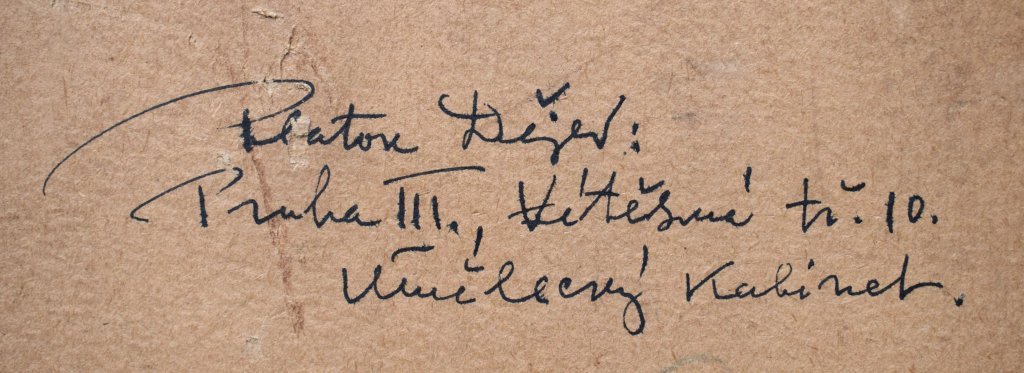 Platon Dějev:
Praha III., Vítězná tř. 10.
Umělecký Kabinet.